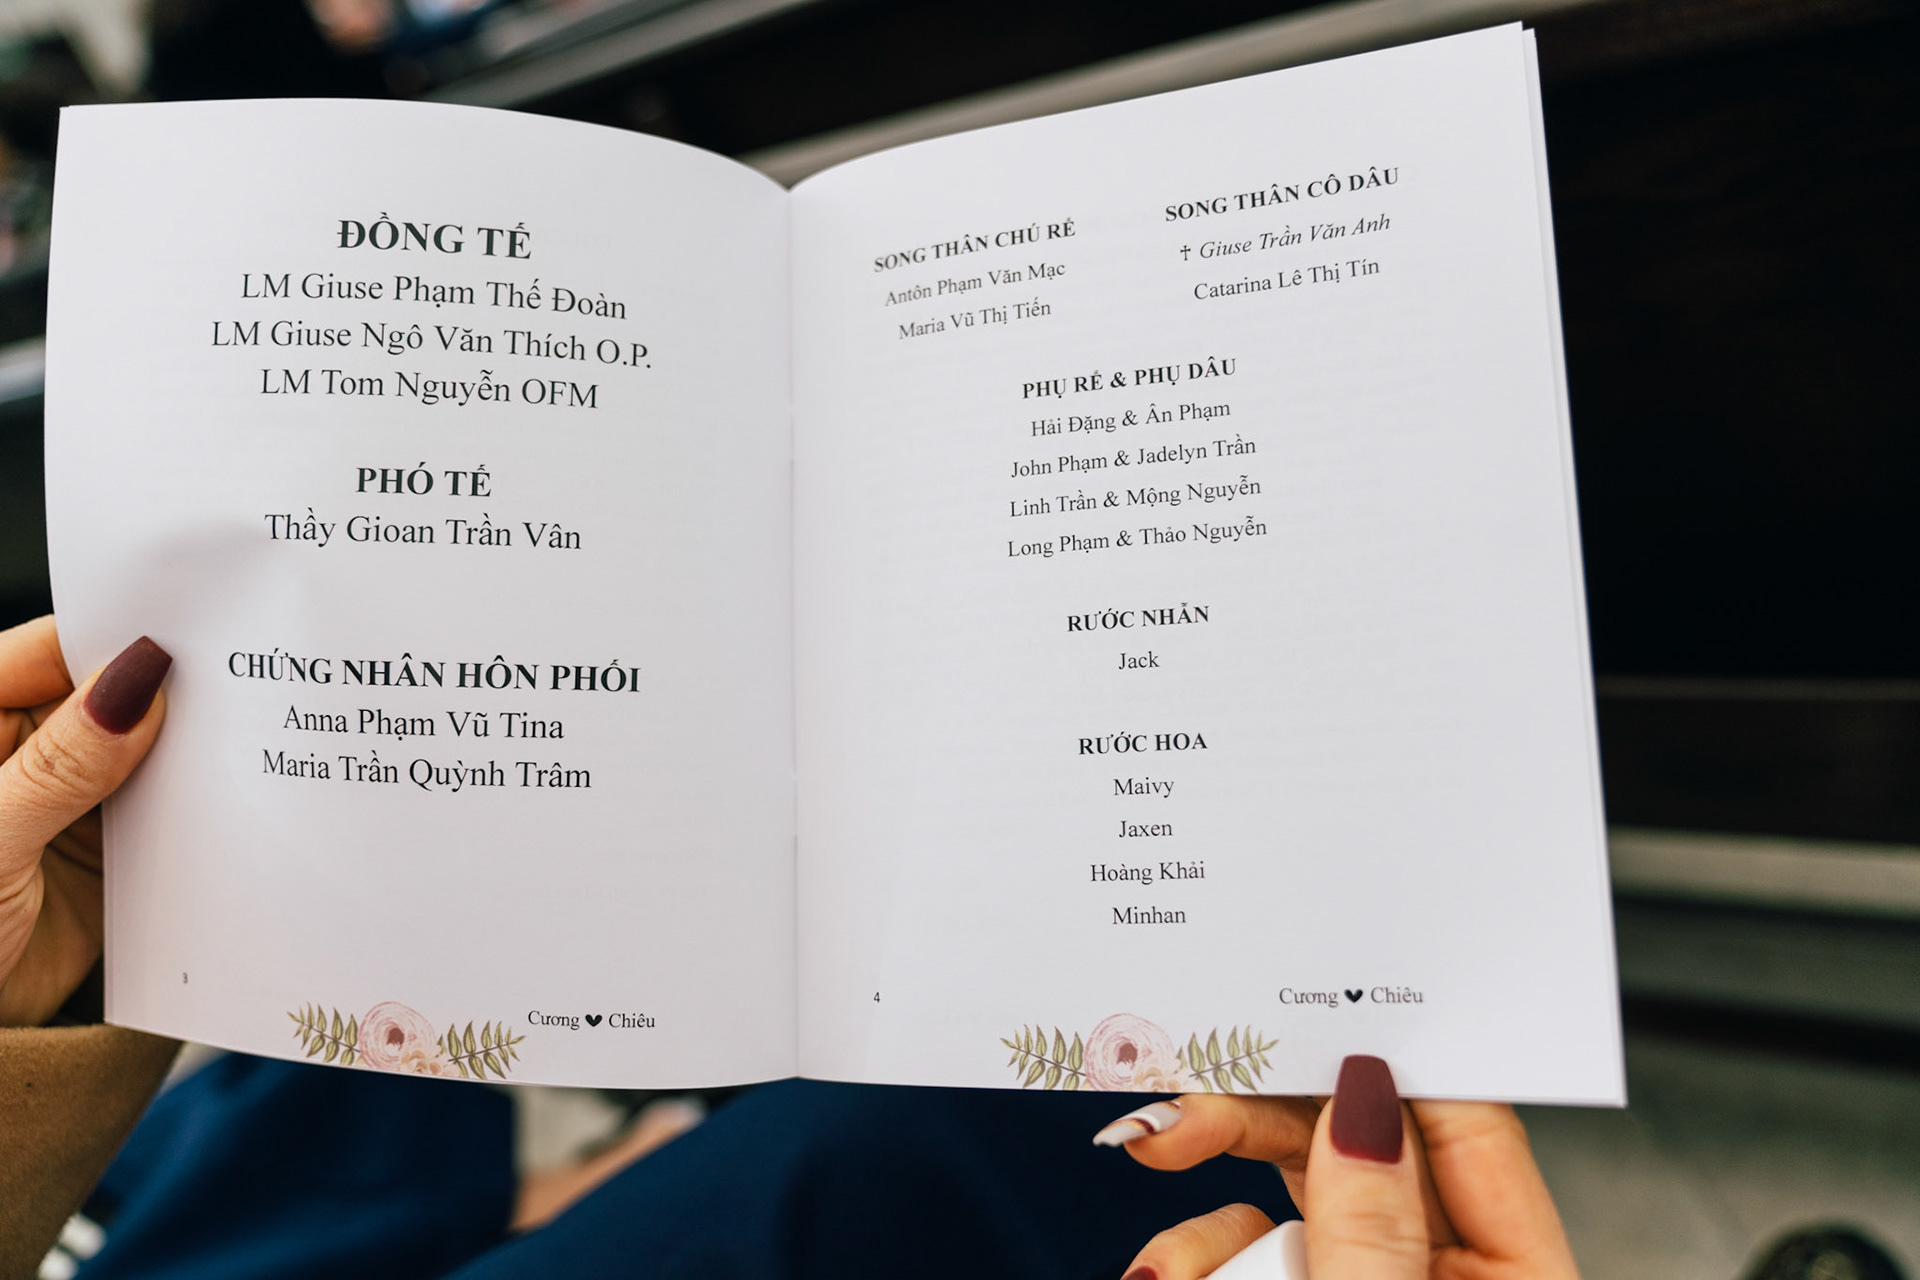 ĐỒNG TẾ
LM Giuse Phạm Thế Đoàn
LM Giuse Ngô Văn Thích O.P.
LM Tom Nguyễn OFM
PHÓ TẾ
Thầy Gioan Trần Vân
CHỨNG NHÂN HÔN PHỐI
Anna Phạm Vũ Tina
Maria Trần Quỳnh Trâm
3
Cương ♥ Chiêu
SONG THÂN CHÚ RỂ
Antôn Phạm Văn Mạc
Maria Vũ Thị Tiến
SONG THÂN CÔ DÂU
✝ Giuse Trần Văn Anh
Catarina Lê Thị Tín
PHỤ RỂ & PHỤ DÂU
Hải Đặng & Ân Phạm
John Phạm & Jadelyn Trần
Linh Trần & Mộng Nguyễn
Long Phạm & Thảo Nguyễn
RƯỚC NHẪN
Jack
RƯỚC HOA
Maivy
Jaxen
Hoàng Khải
Minhan
4
Cương ♥ Chiêu